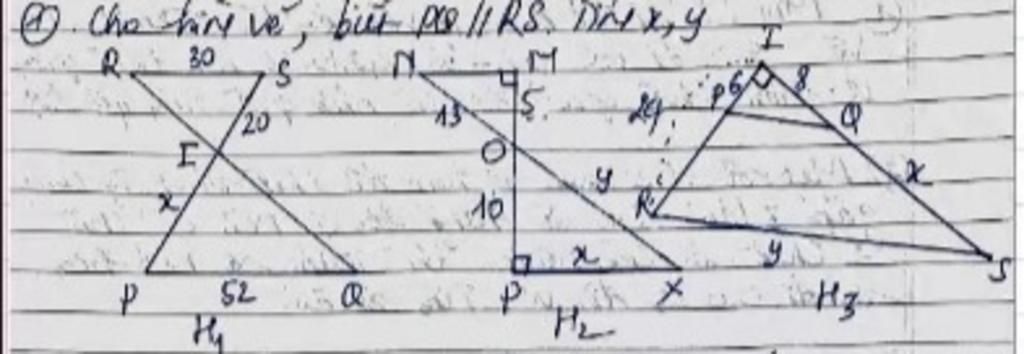 ① Cho hình vẽ, biết PQ // RS. Tìm x, y
R 30 S
20
I
x
P 52 Q
H1
N M
13 5
O
10 y
P x X
H2
I
P 6 8
24 Q
R x
y S
H3